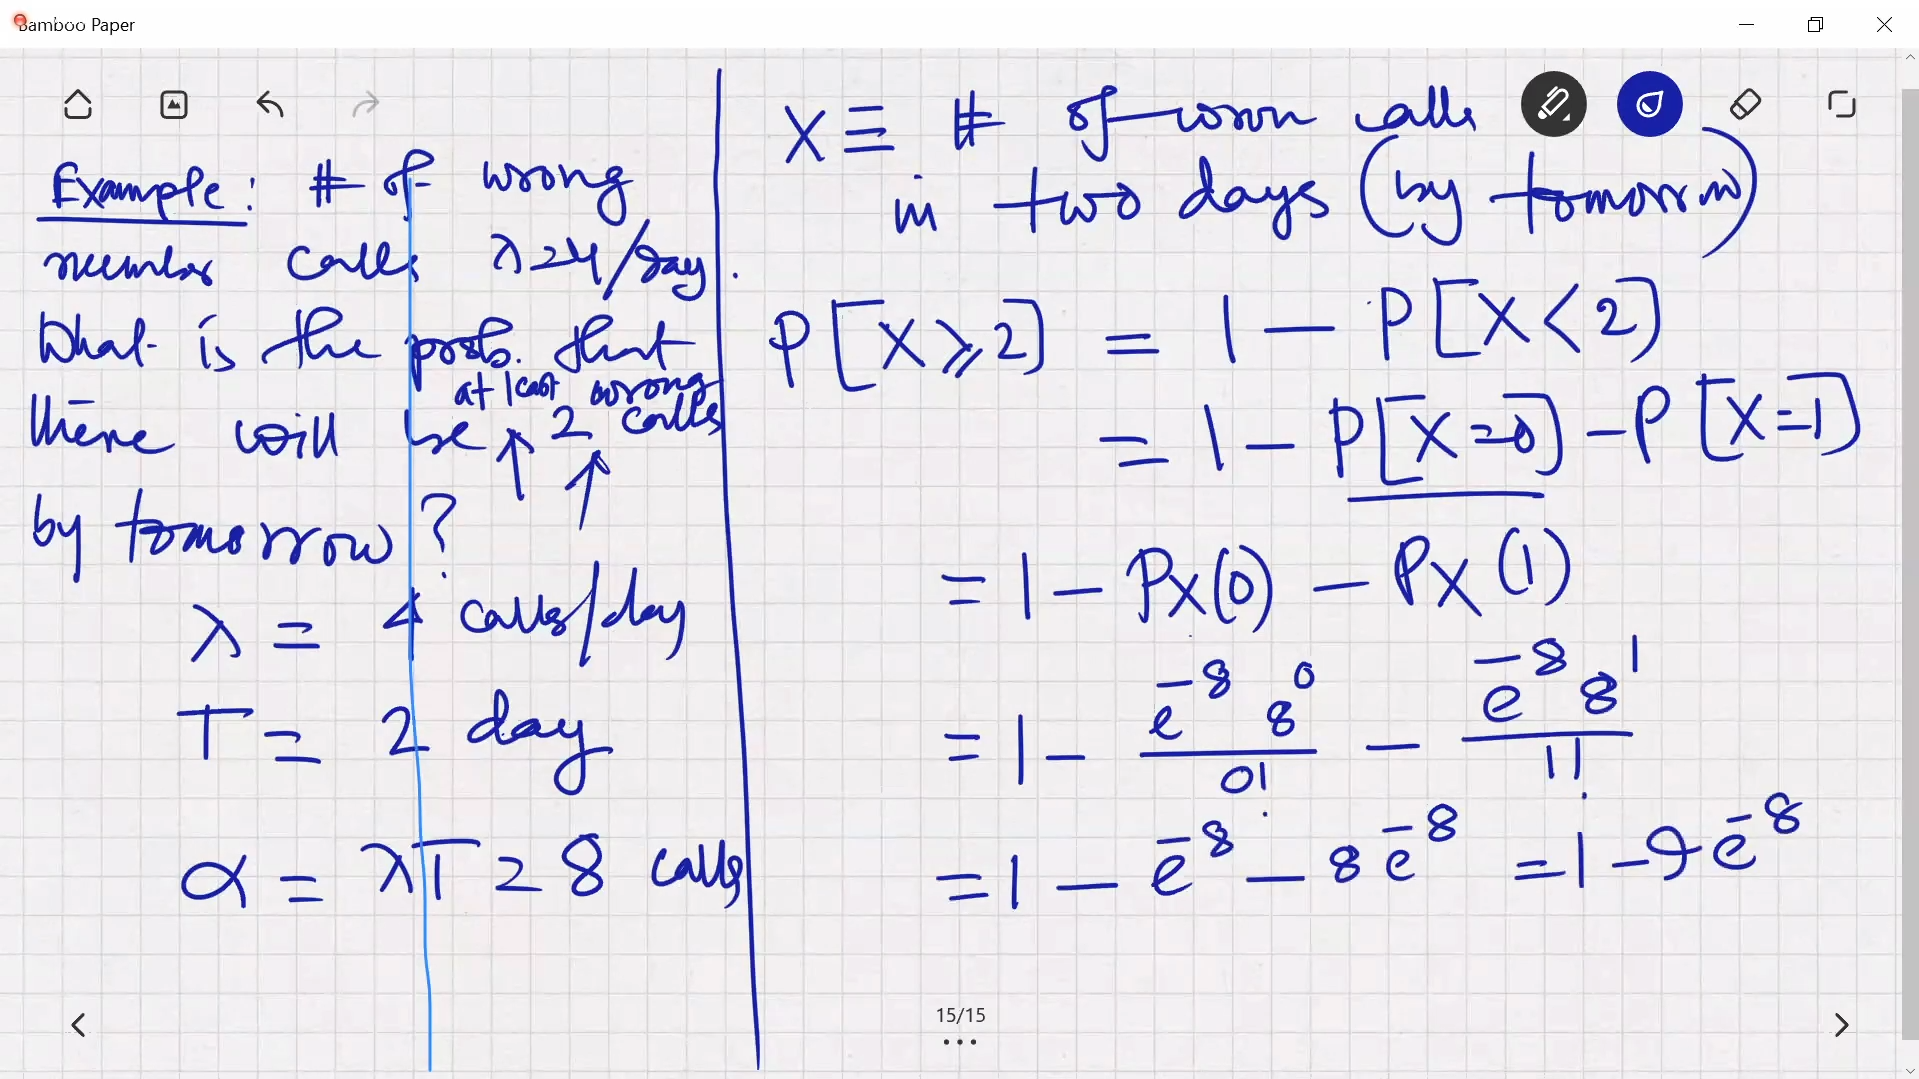 Bamboo Paper
Example: # of wrong
number calls λ=4/day.
What is the prob. that
at least wrong
there will be ↑ 2 calls
by tomorrow?
λ = 4 calls/day
T = 2 day
α = λT = 8 calls
X ≡ # of calls
in two days (by tomorrow)
P[X ⩾ 2] = 1 - P[X < 2]
= 1 - P[X=0] - P[X=1]
= 1 - Px(0) - Px(1)
= 1 - e^-8 8^0 / 0! - e^-8 8^1 / 1!
= 1 - e^-8 - 8 e^-8 = 1 - 9 e^-8
15/15